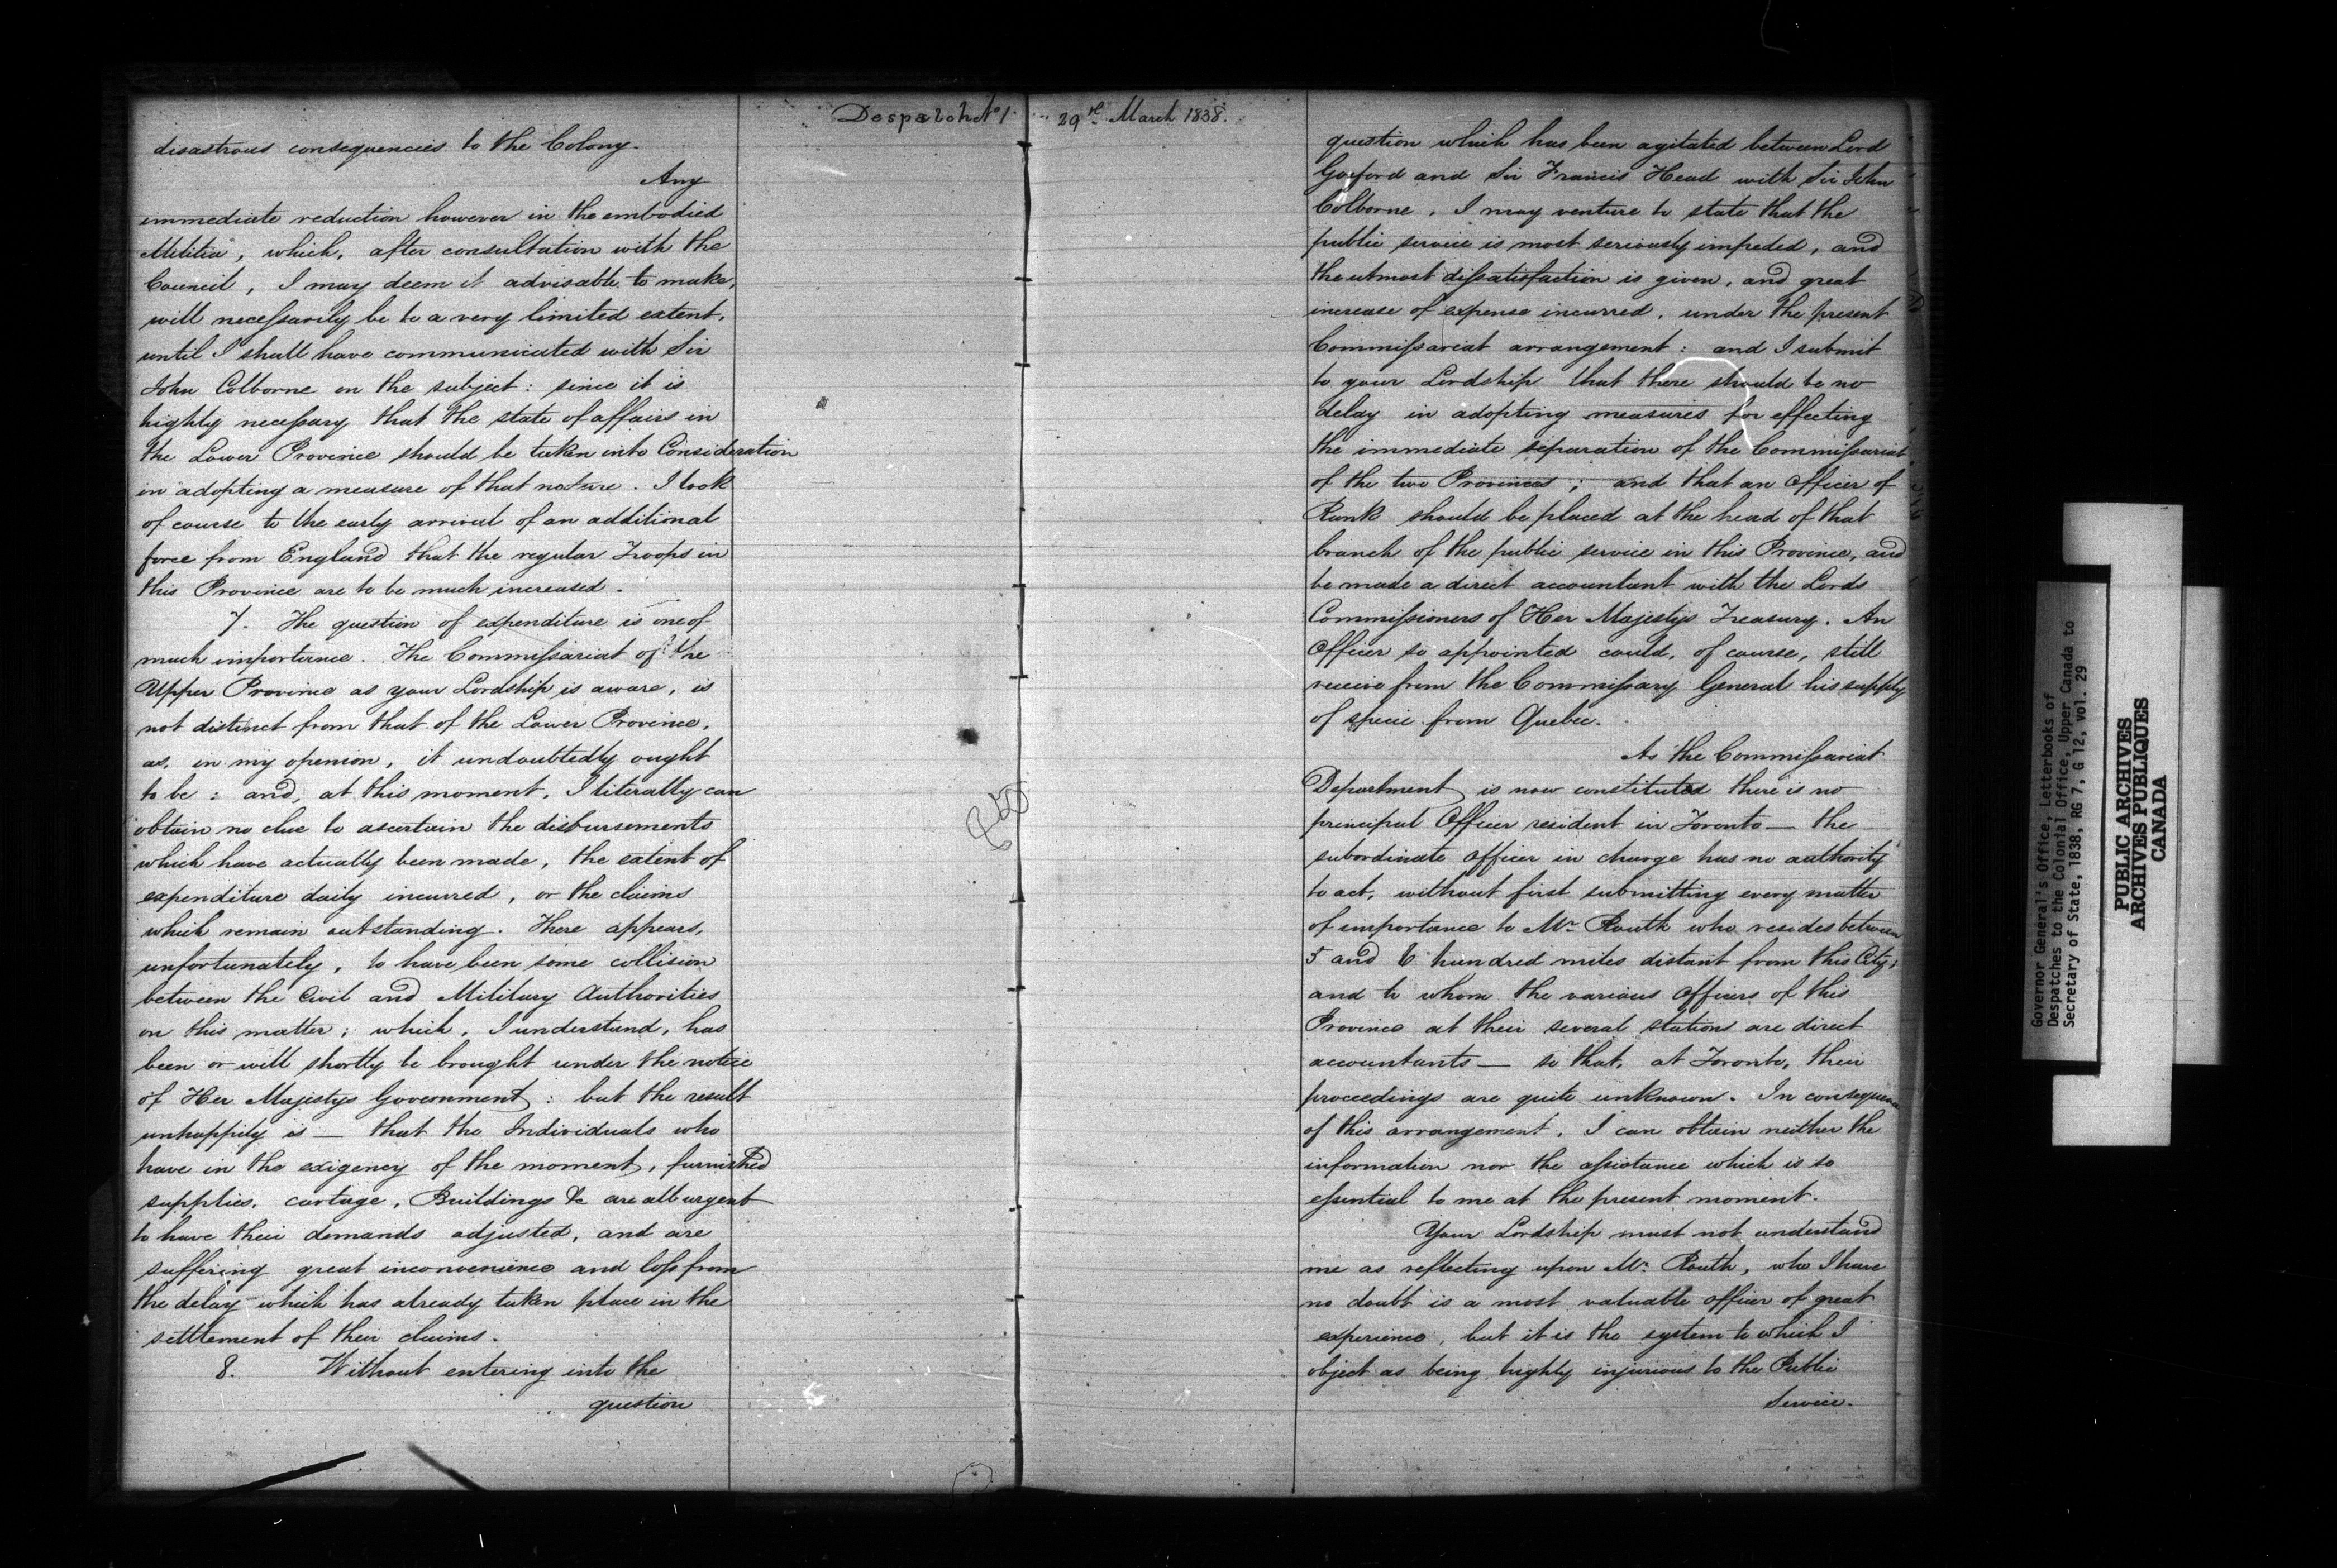 Despatch No 1. 29th March 1838.
disastrous consequences to the Colony.
Any
immediate reduction however in the embodied
Militia, which, after consultation with the
Council, I may deem it advisable to make,
will necessarily be to a very limited extent,
until I shall have communicated with Sir
John Colborne on the subject: since it is
highly necessary that the state of affairs in
the Lower Province should be taken into Consideration
in adopting a measure of that nature. I look
of course to the early arrival of an additional
force from England that the regular Troops in
this Province are to be much increased.
7. The question of expenditure is one of
much importance. The Commissariat of the
Upper Province as your Lordship is aware, is
not distinct from that of the Lower Province,
as, in my openion, it undoubtedly ought
to be: and, at this moment, I literally can
obtain no clue to ascertain the disbursements
which have actually been made, the extent of
expenditure daily incurred, or the claims
which remain outstanding. There appears,
unfortunately, to have been some collision
between the Civil and Military Authorities
on this matter; which, I understand, has
been or will shortly be brought under the notice
of Her Majestys Government: but the result
unhappily is — that the Individuals who
have in the exigency of the moment, furnished
supplies, cartage, Buildings &c are all urgent
to have their demands adjusted, and are
suffering great inconvenience and loss from
the delay which has already taken place in the
settlement of their claims.
8. Without entering into the
question
question which has been agitated between Lord
Gosford and Sir Francis Head with Sir John
Colborne, I may venture to state that the
public service is most seriously impeded, and
the utmost dissatisfaction is given, and great
increase of expense incurred, under the present
Commissariat arrangement: and I submit
to your Lordship that there should be no
delay in adopting measures for effecting
the immediate separation of the Commissariat
of the two Provinces; and that an Officer of
Rank should be placed at the head of that
branch of the public service in this Province, and
be made a direct accountant with the Lords
Commissioners of Her Majestys Treasury. An
Officer so appointed could, of course, still
receive from the Commissary General his supply
of specie from Quebec.
As the Commissariat
Department is now constituted there is no
principal Officer resident in Toronto — the
subordinate Officer in charge has no authority
to act, without first submitting every matter
of importance to Mr. Routh who resides between
5 and 6 hundred miles distant from this City;
and to whom the various Officers of this
Province at their several stations are direct
accountants — so that, at Toronto, their
proceedings are quite unknown. In consequence
of this arrangement, I can obtain neither the
information nor the assistance which is so
essential to me at the present moment.
Your Lordship must not understand
me as reflecting upon Mr. Routh, who I have
no doubt is a most valuable officer of great
experience, but it is the system to which I
object as being highly injurious to the Public
Service.
Governor General's Office, Letterbooks of
Despatches to the Colonial Office, Upper Canada to
Secretary of State, 1838, RG 7, G 12, vol. 29
PUBLIC ARCHIVES
ARCHIVES PUBLIQUES
CANADA